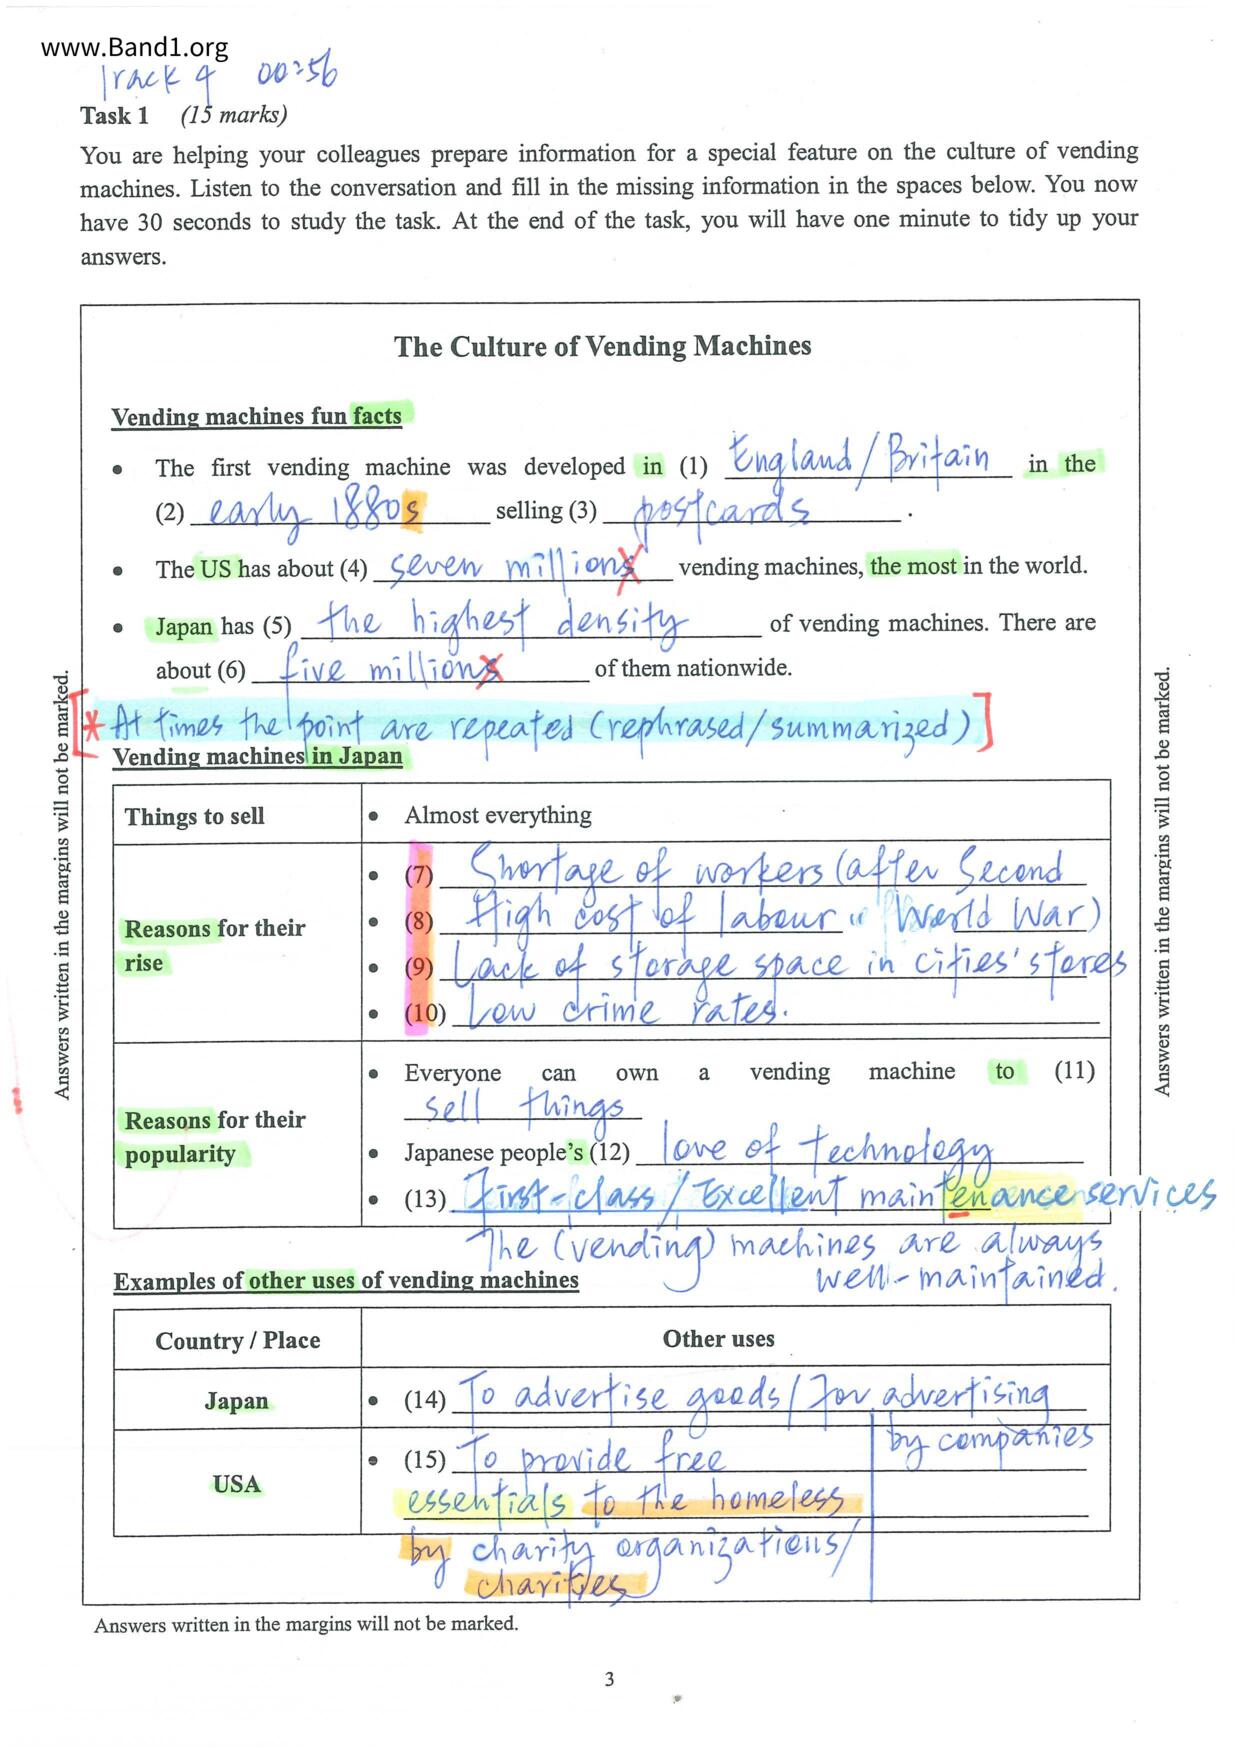 www.Band1.org
Track 4 00:56
Task 1 (15 marks)
You are helping your colleagues prepare information for a special feature on the culture of vending
machines. Listen to the conversation and fill in the missing information in the spaces below. You now
have 30 seconds to study the task. At the end of the task, you will have one minute to tidy up your
answers.
The Culture of Vending Machines
Vending machines fun facts
• The first vending machine was developed in (1) England/Britain in the
(2) early 1880s selling (3) postcards .
• The US has about (4) seven millions vending machines, the most in the world.
• Japan has (5) the highest density of vending machines. There are
about (6) five millions of them nationwide.
[* At times the point are repeated (rephrased/summarized)]
Vending machines in Japan
Things to sell
• Almost everything
Reasons for their
rise
• (7) Shortage of workers (after Second
• (8) High cost of labour World War)
• (9) Lack of storage space in cities' stores
• (10) Low crime rates.
Reasons for their
popularity
• Everyone can own a vending machine to (11)
sell things
• Japanese people's (12) love of technology
• (13) First-class/Excellent maintenance services
The (vending) machines are always
well-maintained.
Examples of other uses of vending machines
Country / Place
Other uses
Japan
• (14) To advertise goods/for advertising
by companies
USA
• (15) To provide free
essentials to the homeless
by charity organizations/
charities
Answers written in the margins will not be marked.
Answers written in the margins will not be marked.
Answers written in the margins will not be marked.
3